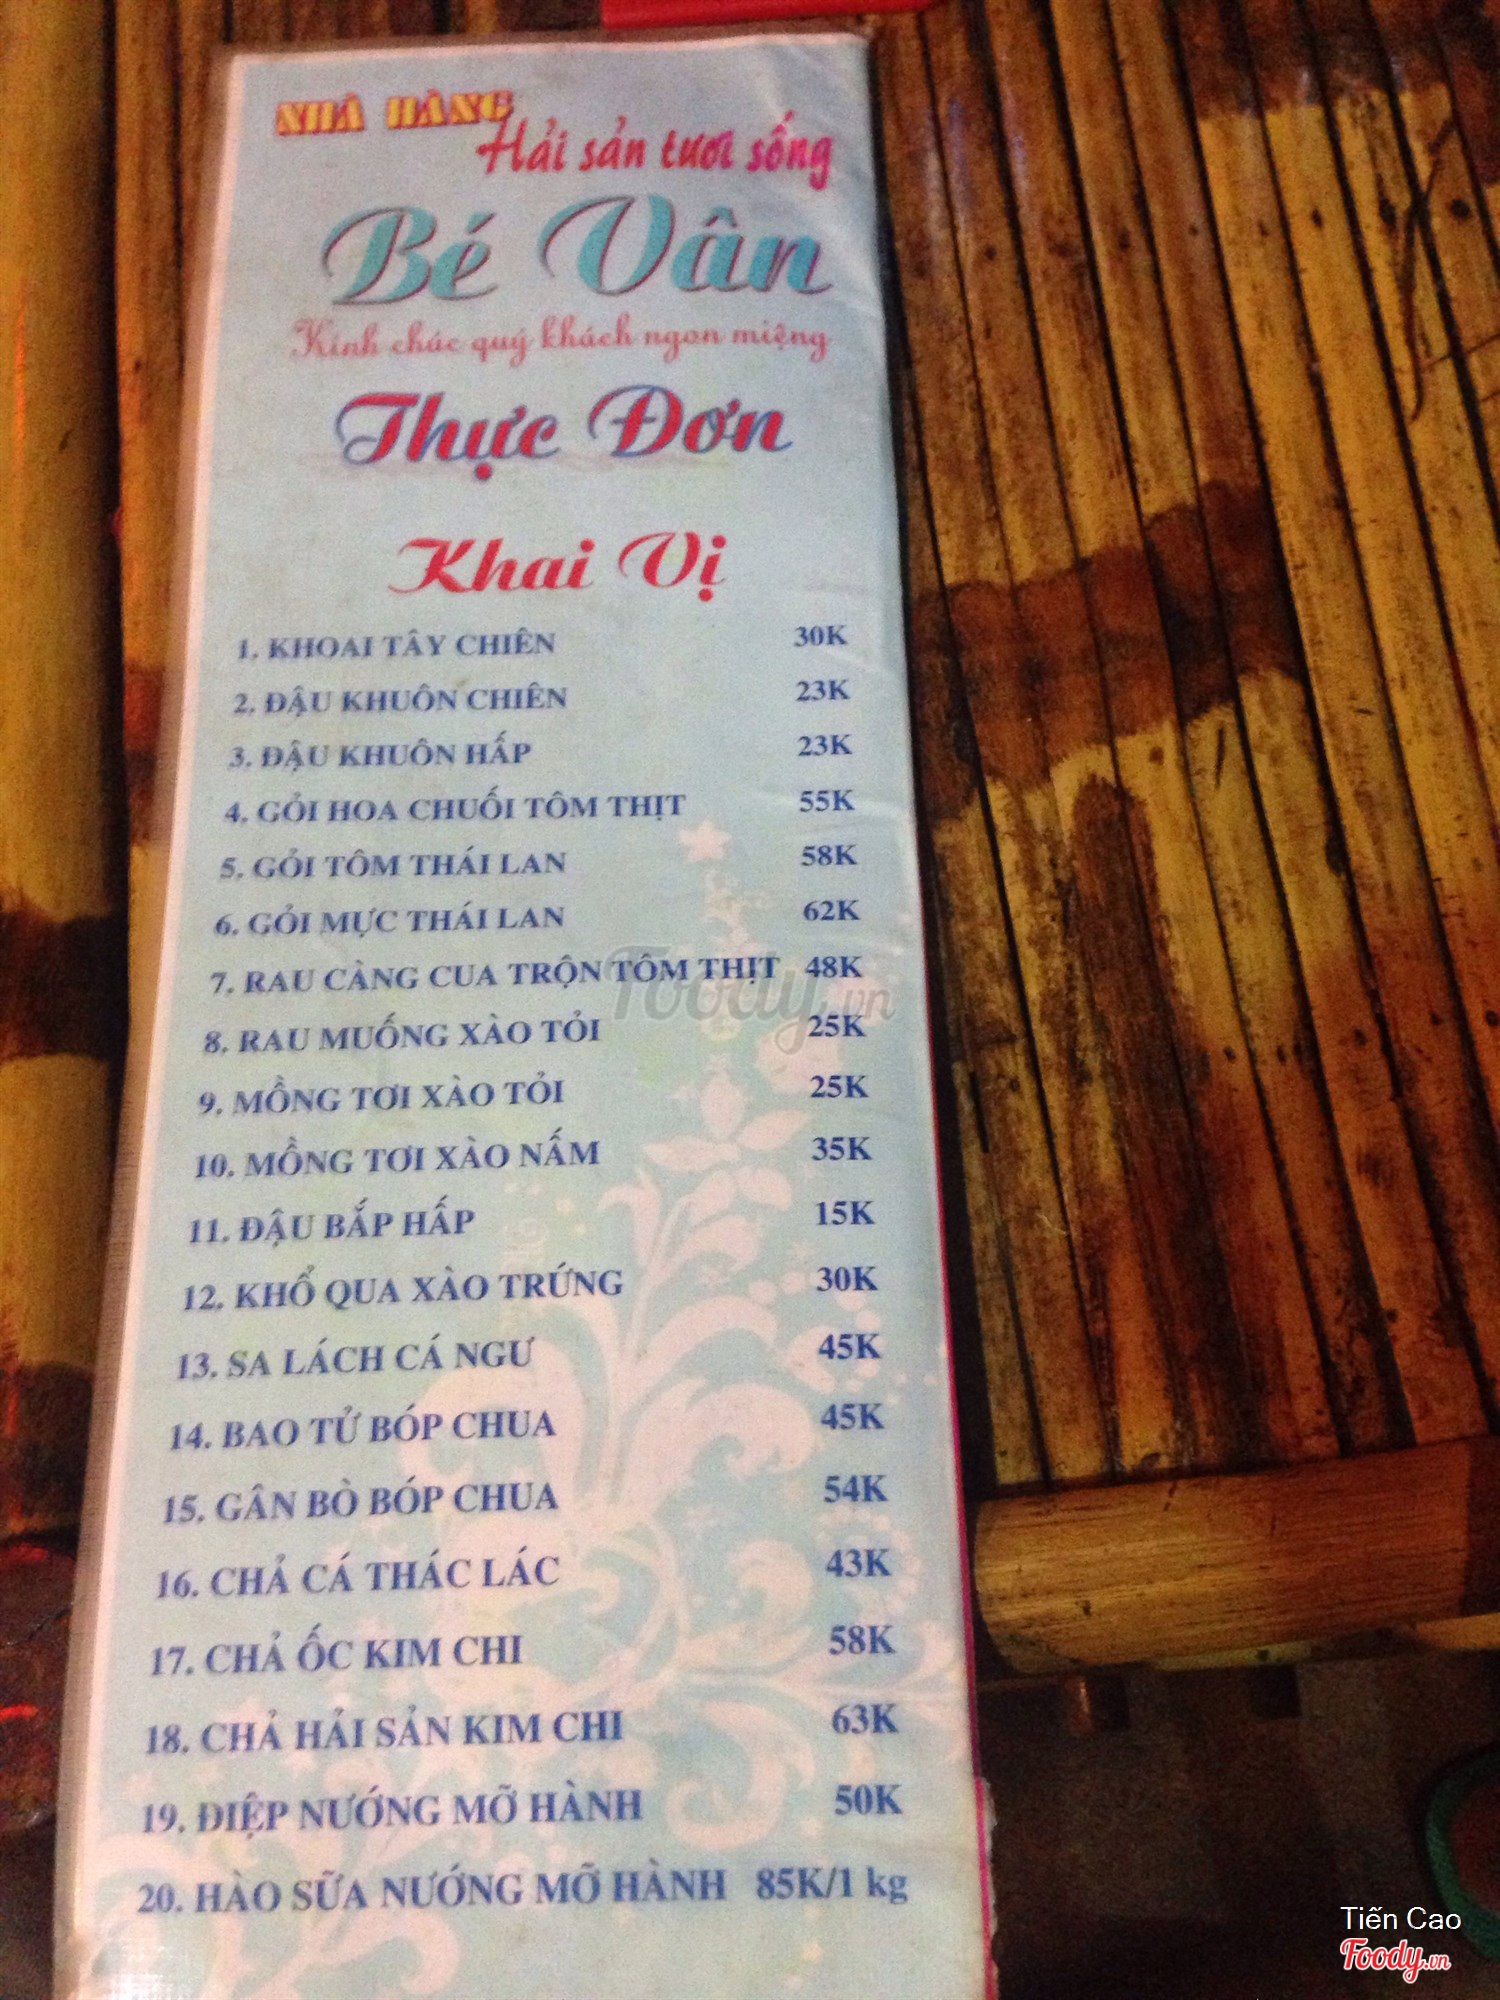 NHÀ HÀNG
Hải sản tươi sống
Bé Vân
Kính chúc quý khách ngon miệng
Thực Đơn
Khai Vị
1. KHOAI TÂY CHIÊN 30K
2. ĐẬU KHUÔN CHIÊN 23K
3. ĐẬU KHUÔN HẤP 23K
4. GỎI HOA CHUỐI TÔM THỊT 55K
5. GỎI TÔM THÁI LAN 58K
6. GỎI MỰC THÁI LAN 62K
7. RAU CÀNG CUA TRỘN TÔM THỊT 48K
Foody.vn
8. RAU MUỐNG XÀO TỎI 25K
9. MỒNG TƠI XÀO TỎI 25K
10. MỒNG TƠI XÀO NẤM 35K
11. ĐẬU BẮP HẤP 15K
12. KHỔ QUA XÀO TRỨNG 30K
13. SA LÁCH CÁ NGƯ 45K
14. BAO TỬ BÓP CHUA 45K
15. GÂN BÒ BÓP CHUA 54K
16. CHẢ CÁ THÁC LÁC 43K
17. CHẢ ỐC KIM CHI 58K
18. CHẢ HẢI SẢN KIM CHI 63K
19. ĐIỆP NƯỚNG MỠ HÀNH 50K
20. HÀO SỮA NƯỚNG MỠ HÀNH 85K/1 kg
Tiến Cao
Foody.vn